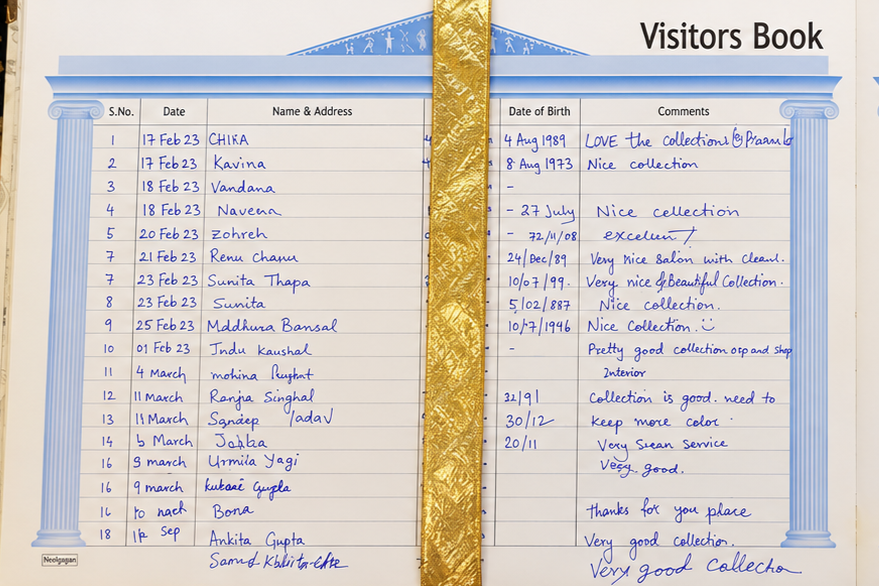 Visitors Book
S.No. Date Name & Address Date of Birth Comments
1 17 Feb 23 CHIKA 4 Aug 1989 LOVE the collection
2 17 Feb 23 Kavina 8 Aug 1973 Nice collection
3 18 Feb 23 Vandana -
4 18 Feb 23 Naveena - 27 July Nice cellection
5 20 Feb 23 zohreh - 72/11/08
7 21 Feb 23 Renu Chanu 24/Dec/89 Very nice salon with
7 23 Feb 23 Sunita Thapa 10/07/99. Very nice & Beautiful Collection.
8 23 Feb 23 Sunita 5/02/887 Nice collection.
9 25 Feb 23 Maddhura Bansal 10/7/1946 Nice Collection.
10 01 Feb 23 Indu Kaushal - Pretty good collection and shop
11 4 March mohina Interior
12 11 March Ranjia Singhal 32/91 Collection is good. need to
13 11 March Sandeep Yadav 30/12 keep more color
14 March 20/11 Very service
16 9 march Urmila Yagi Very good.
16 9 march Gupta
Bona thanks for you place
18 Sep Ankita Gupta Very good collection.
Very good
Neelgagan